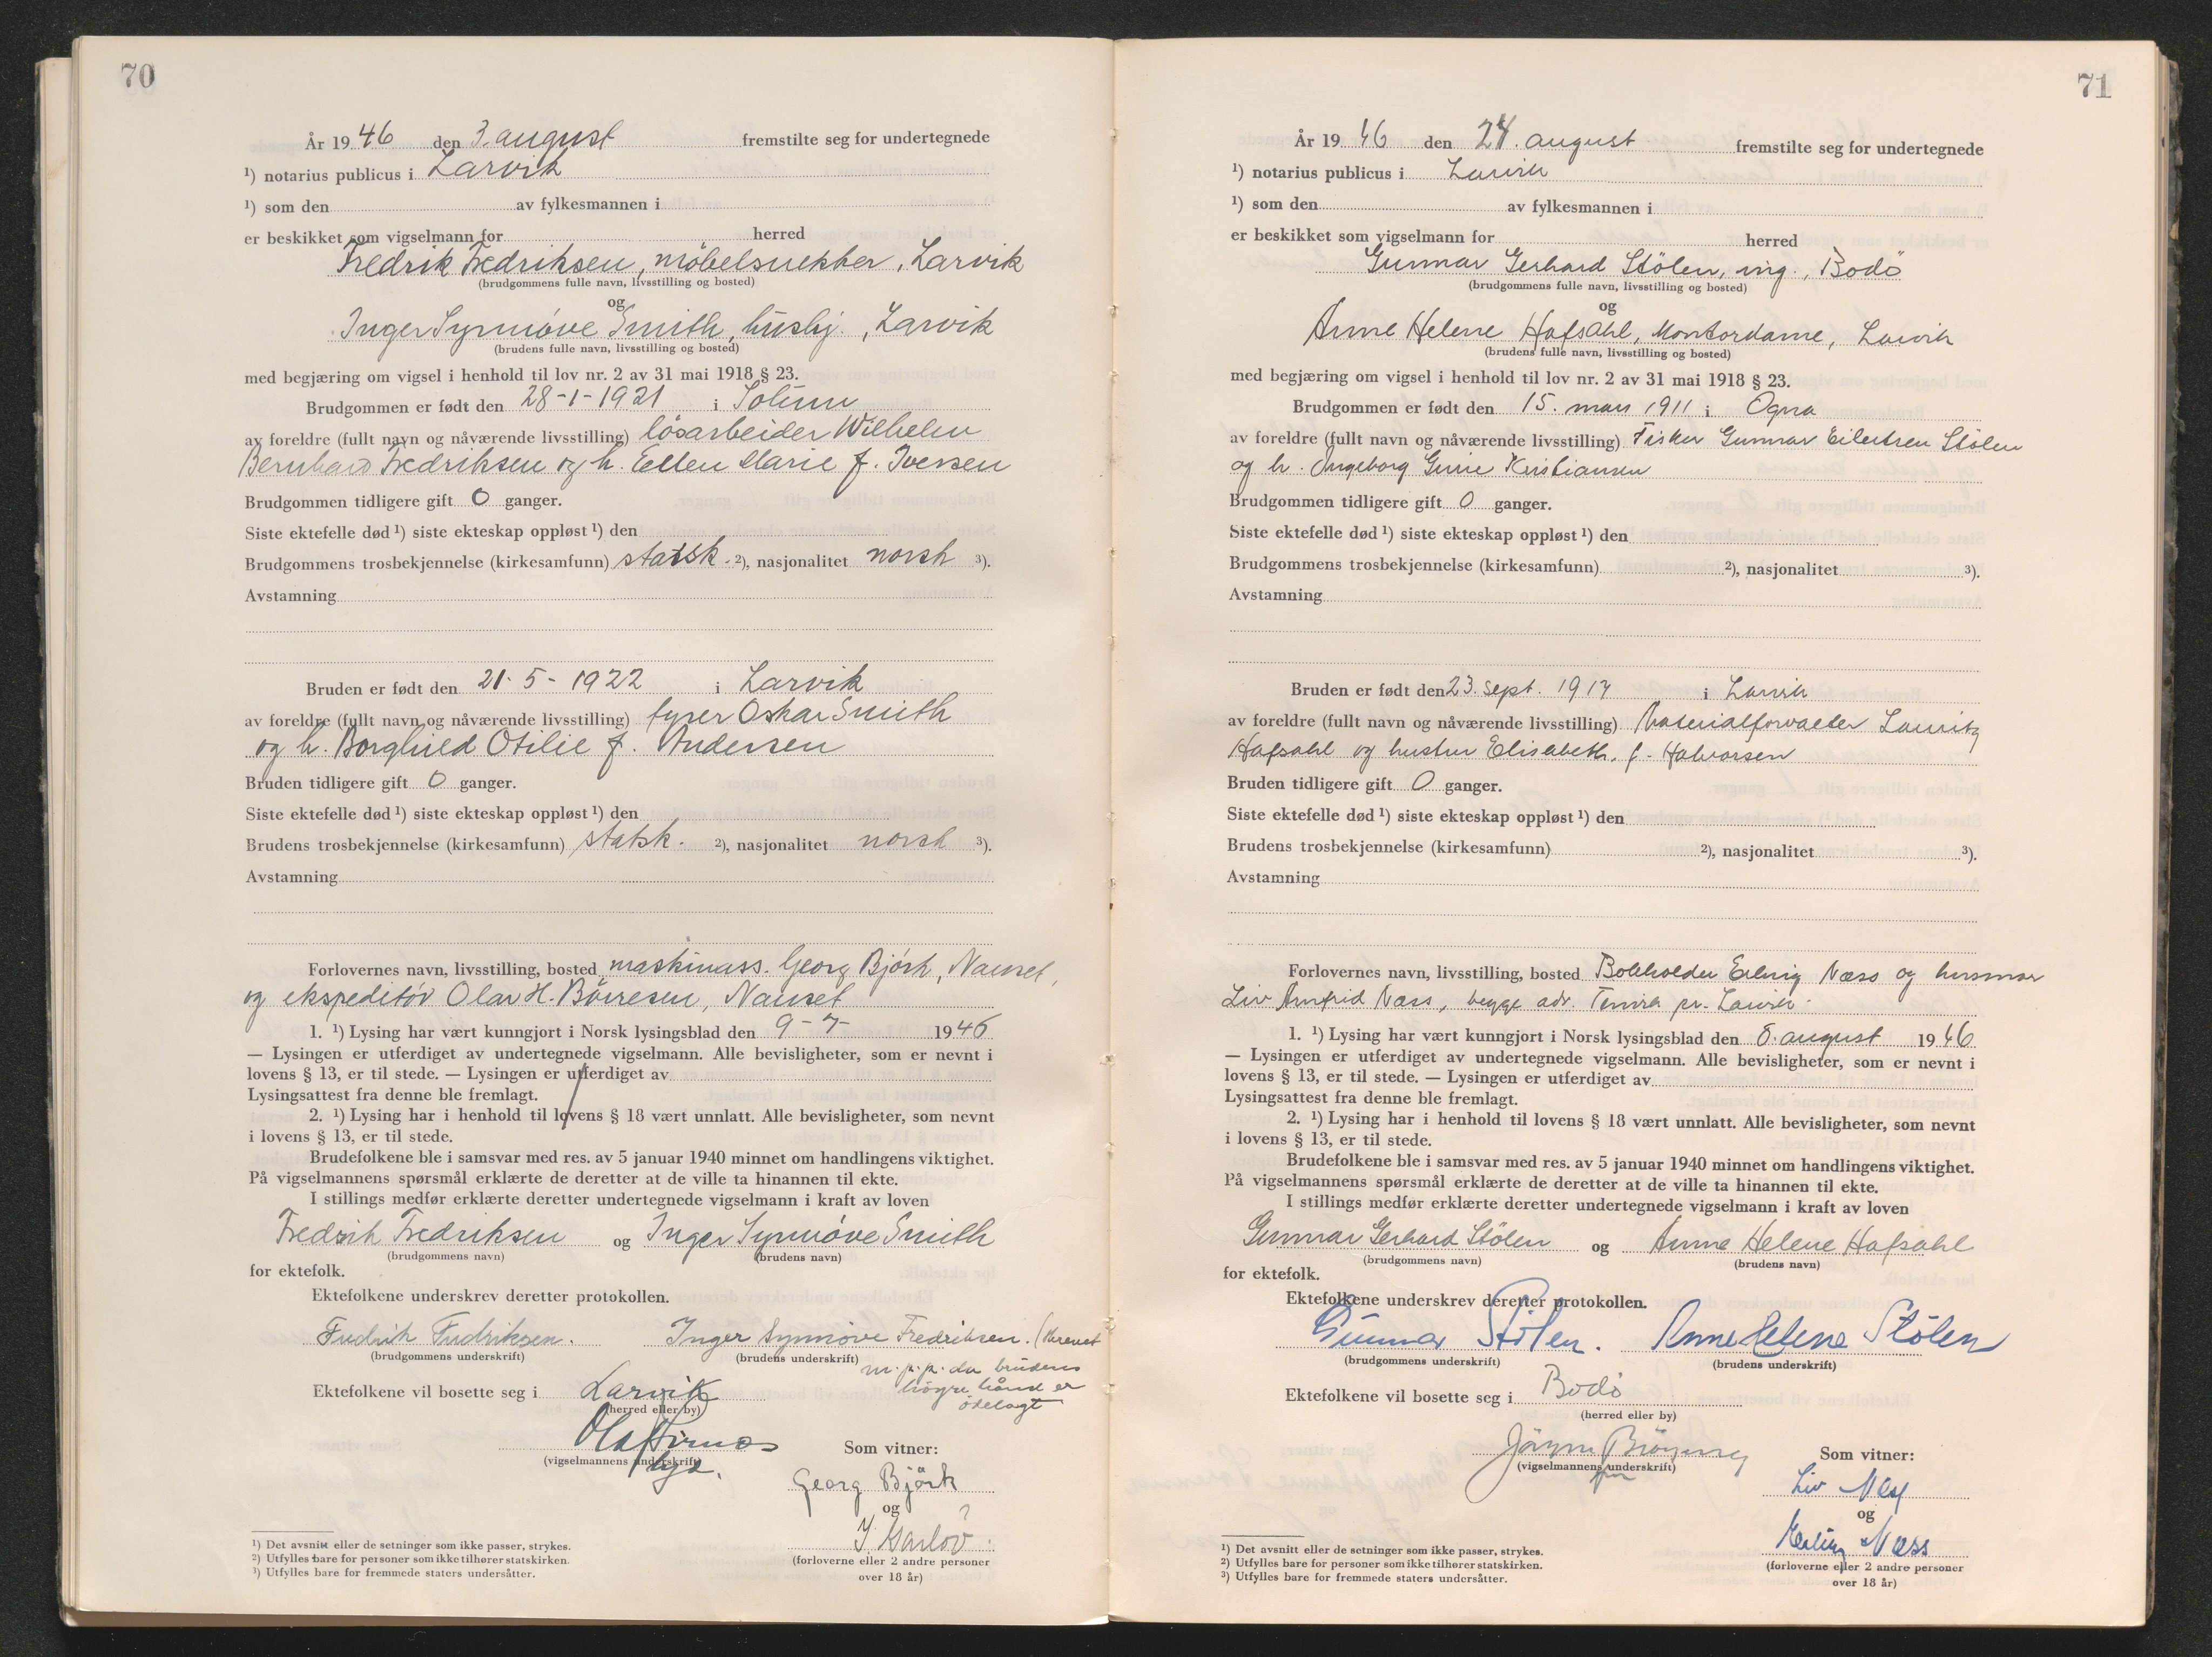 70
År 1946 den 3. august fremstilte seg for undertegnede
¹) notarius publicus i Larvik
¹) som den av fylkesmannen i
er beskikket som vigselmann for herred
Fredrik Fredriksen, møbelsnekker, Larvik
(brudgommens fulle navn, livsstilling og bosted)
og
Inger Synnøve Smith, hushj., Larvik
(brudens fulle navn, livsstilling og bosted)
med begjæring om vigsel i henhold til lov nr. 2 av 31 mai 1918 § 23.
Brudgommen er født den 28-1-1921 i Solum
av foreldre (fullt navn og nåværende livsstilling) løsarbeider Wilhelm
Bernhard Fredriksen og h. Ellen Marie f. Iversen
Brudgommen tidligere gift 0 ganger.
Siste ektefelle død ¹) siste ekteskap oppløst ¹) den
Brudgommens trosbekjennelse (kirkesamfunn) statsk. ²), nasjonalitet norsk ³).
Avstamning
Bruden er født den 21-5-1922 i Larvik
av foreldre (fullt navn og nåværende livsstilling) fyrer Oskar Smith
og h. Borghild Otilie f. Andersen
Bruden tidligere gift 0 ganger.
Siste ektefelle død ¹) siste ekteskap oppløst ¹) den
Brudens trosbekjennelse (kirkesamfunn) statsk. ²), nasjonalitet norsk ³).
Avstamning
Forlovernes navn, livsstilling, bosted maskinass. Georg Björk, Nanset,
og ekspeditör Olav H. Börresen, Nanset
1. ¹) Lysing har vært kunngjort i Norsk lysingsblad den 9-7- 1946
— Lysingen er utferdiget av undertegnede vigselmann. Alle bevisligheter, som er nevnt i
lovens § 13, er til stede. — Lysingen er utferdiget av
Lysingsattest fra denne ble fremlagt.
2. ¹) Lysing har i henhold til lovens § 18 vært unnlatt. Alle bevisligheter, som nevnt
i lovens § 13, er til stede.
Brudefolkene ble i samsvar med res. av 5 januar 1940 minnet om handlingens viktighet.
På vigselmannens spørsmål erklærte de deretter at de ville ta hinannen til ekte.
I stillings medfør erklærte deretter undertegnede vigselmann i kraft av loven
Fredrik Fredriksen og Inger Synnøve Smith
(brudgommens navn) (brudens navn)
for ektefolk.
Ektefolkene underskrev deretter protokollen.
Fredrik Fredriksen. Inger Synnøve Fredriksen.
(brudgommens underskrift) (brudens underskrift) m.p.p. da brudens
högre hånd er
ödelagt
Ektefolkene vil bosette seg i Larvik
(herred eller by)
(vigselmannens underskrift)
Som vitner:
Georg Björk
og
(forloverne eller 2 andre personer
over 18 år)
¹) Det avsnitt eller de setninger som ikke passer, strykes.
²) Utfylles bare for personer som ikke tilhører statskirken.
³) Utfylles bare for fremmede staters undersåtter.
71
År 1946 den 24. august fremstilte seg for undertegnede
¹) notarius publicus i Larvik
¹) som den av fylkesmannen i
er beskikket som vigselmann for herred
Gunnar Gerhard Stölen, ing., Bodö
(brudgommens fulle navn, livsstilling og bosted)
og
Anne Helene Hafsahl, kontordame, Larvik
(brudens fulle navn, livsstilling og bosted)
med begjæring om vigsel i henhold til lov nr. 2 av 31 mai 1918 § 23.
Brudgommen er født den 15. mars 1911 i Ogna
av foreldre (fullt navn og nåværende livsstilling) Fisker Gunnar Eilertsen Stölen
og h. Ingeborg Gurie Kristiansen
Brudgommen tidligere gift 0 ganger.
Siste ektefelle død ¹) siste ekteskap oppløst ¹) den
Brudgommens trosbekjennelse (kirkesamfunn) ²), nasjonalitet ³).
Avstamning
Bruden er født den 23. sept. 1917 i Larvik
av foreldre (fullt navn og nåværende livsstilling) Materialforvalter Lauritz
Hafsahl og hustru Elisabeth, f. Halvorsen
Bruden tidligere gift 0 ganger.
Siste ektefelle død ¹) siste ekteskap oppløst ¹) den
Brudens trosbekjennelse (kirkesamfunn) ²), nasjonalitet ³).
Avstamning
Forlovernes navn, livsstilling, bosted Bokholder Erling Næss og husmor
Liv Næss, begge adr. Tenvik pr. Larvik.
1. ¹) Lysing har vært kunngjort i Norsk lysingsblad den 8. august 1946
— Lysingen er utferdiget av undertegnede vigselmann. Alle bevisligheter, som er nevnt i
lovens § 13, er til stede. — Lysingen er utferdiget av
Lysingsattest fra denne ble fremlagt.
2. ¹) Lysing har i henhold til lovens § 18 vært unnlatt. Alle bevisligheter, som nevnt
i lovens § 13, er til stede.
Brudefolkene ble i samsvar med res. av 5 januar 1940 minnet om handlingens viktighet.
På vigselmannens spørsmål erklærte de deretter at de ville ta hinannen til ekte.
I stillings medfør erklærte deretter undertegnede vigselmann i kraft av loven
Gunnar Gerhard Stölen og Anne Helene Hafsahl
(brudgommens navn) (brudens navn)
for ektefolk.
Ektefolkene underskrev deretter protokollen.
Gunnar Stölen. Anne Helene Stölen
(brudgommens underskrift) (brudens underskrift)
Ektefolkene vil bosette seg i Bodö
(herred eller by)
(vigselmannens underskrift)
Som vitner:
Liv Næss
og
Erling Næss
(forloverne eller 2 andre personer
over 18 år)
¹) Det avsnitt eller de setninger som ikke passer, strykes.
²) Utfylles bare for personer som ikke tilhører statskirken.
³) Utfylles bare for fremmede staters undersåtter.